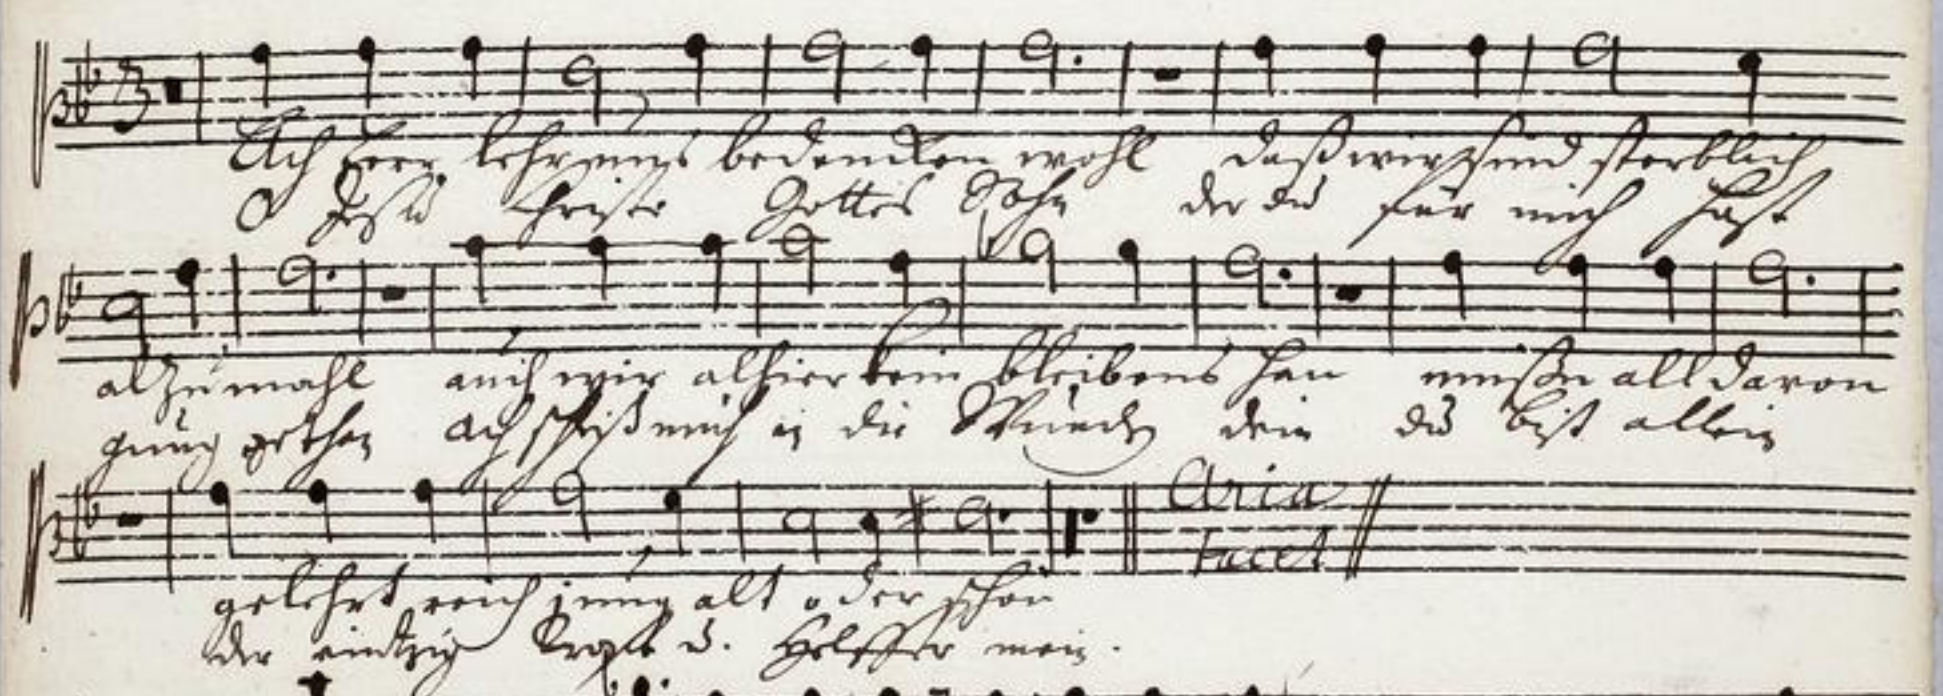 Ach Herr lehr uns bedencken wohl daß wir sind sterblich
O Jesu Christe Gottes Sohn der du für mich hast
alzumahl auch wir alhier kein bleibens han müßen all davon
gnung gethan Ach schließ mich in die Wunden dein du bist allein
Aria
tacet
gelehrt reich jung alt oder schon
der eintzig Trost u. Helffer mein.